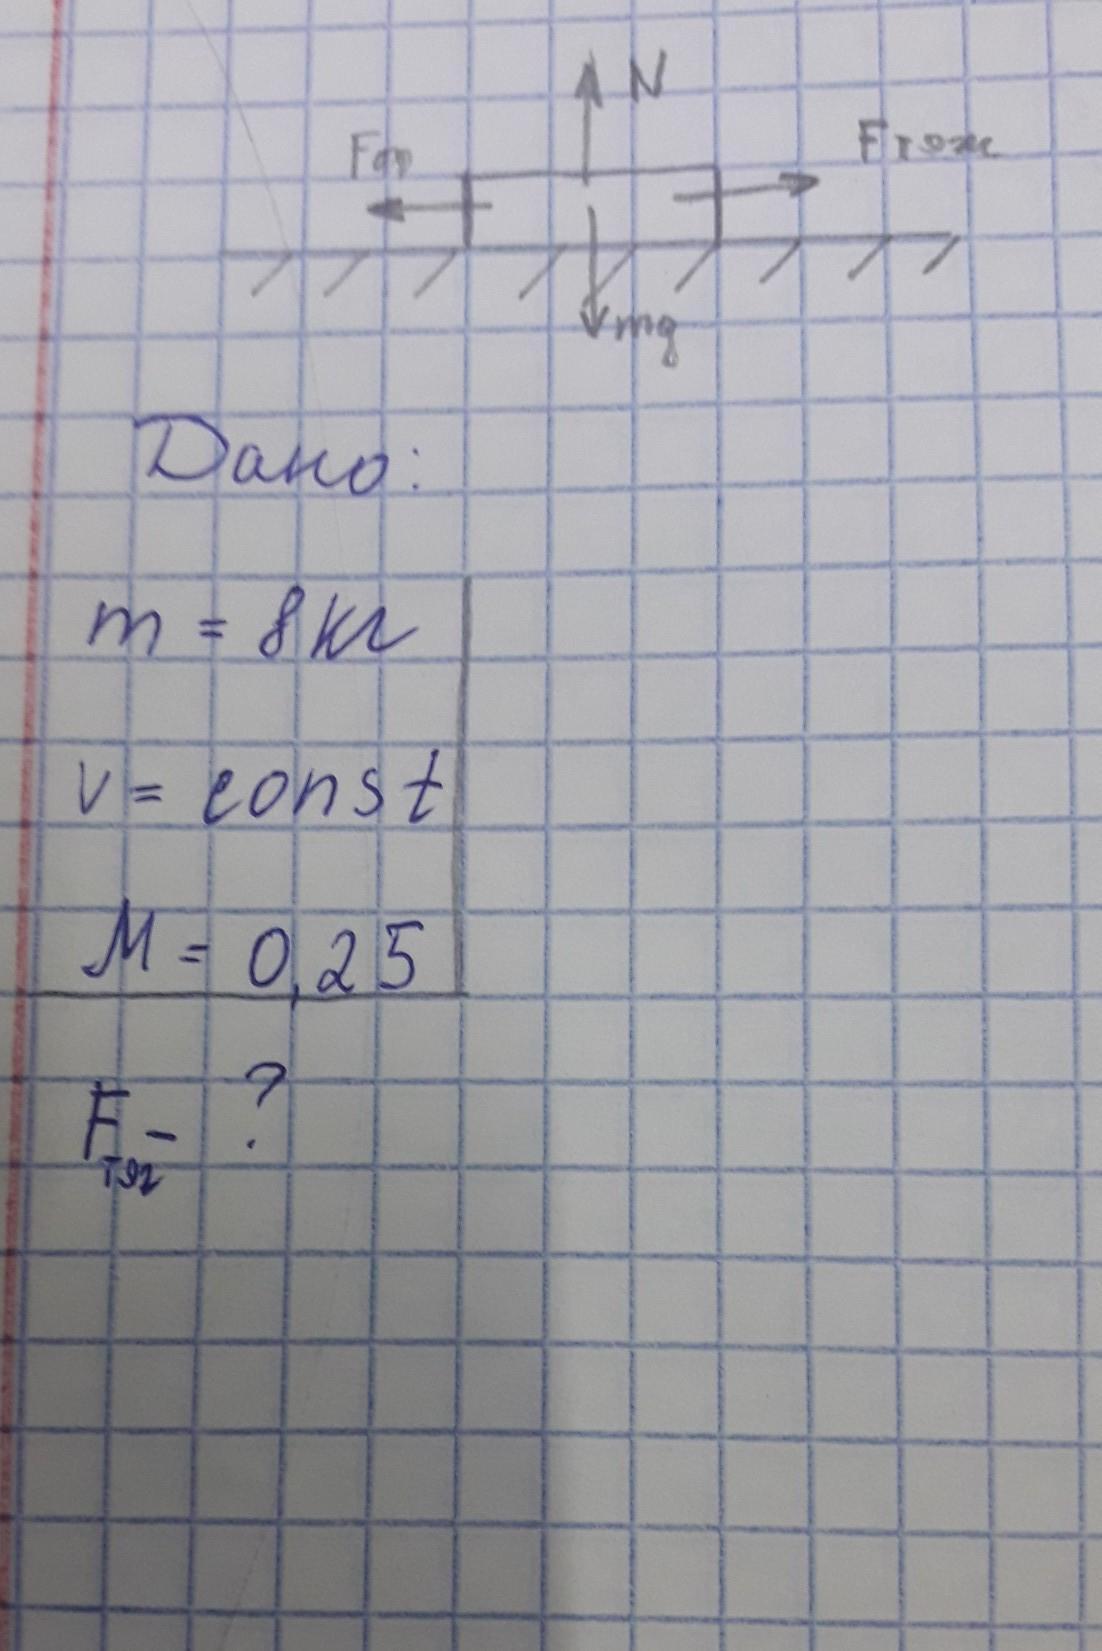 N
Fтр
Fтяж
mg
Дано:
m = 8 кг
v = const
М = 0,25
Fтяг - ?